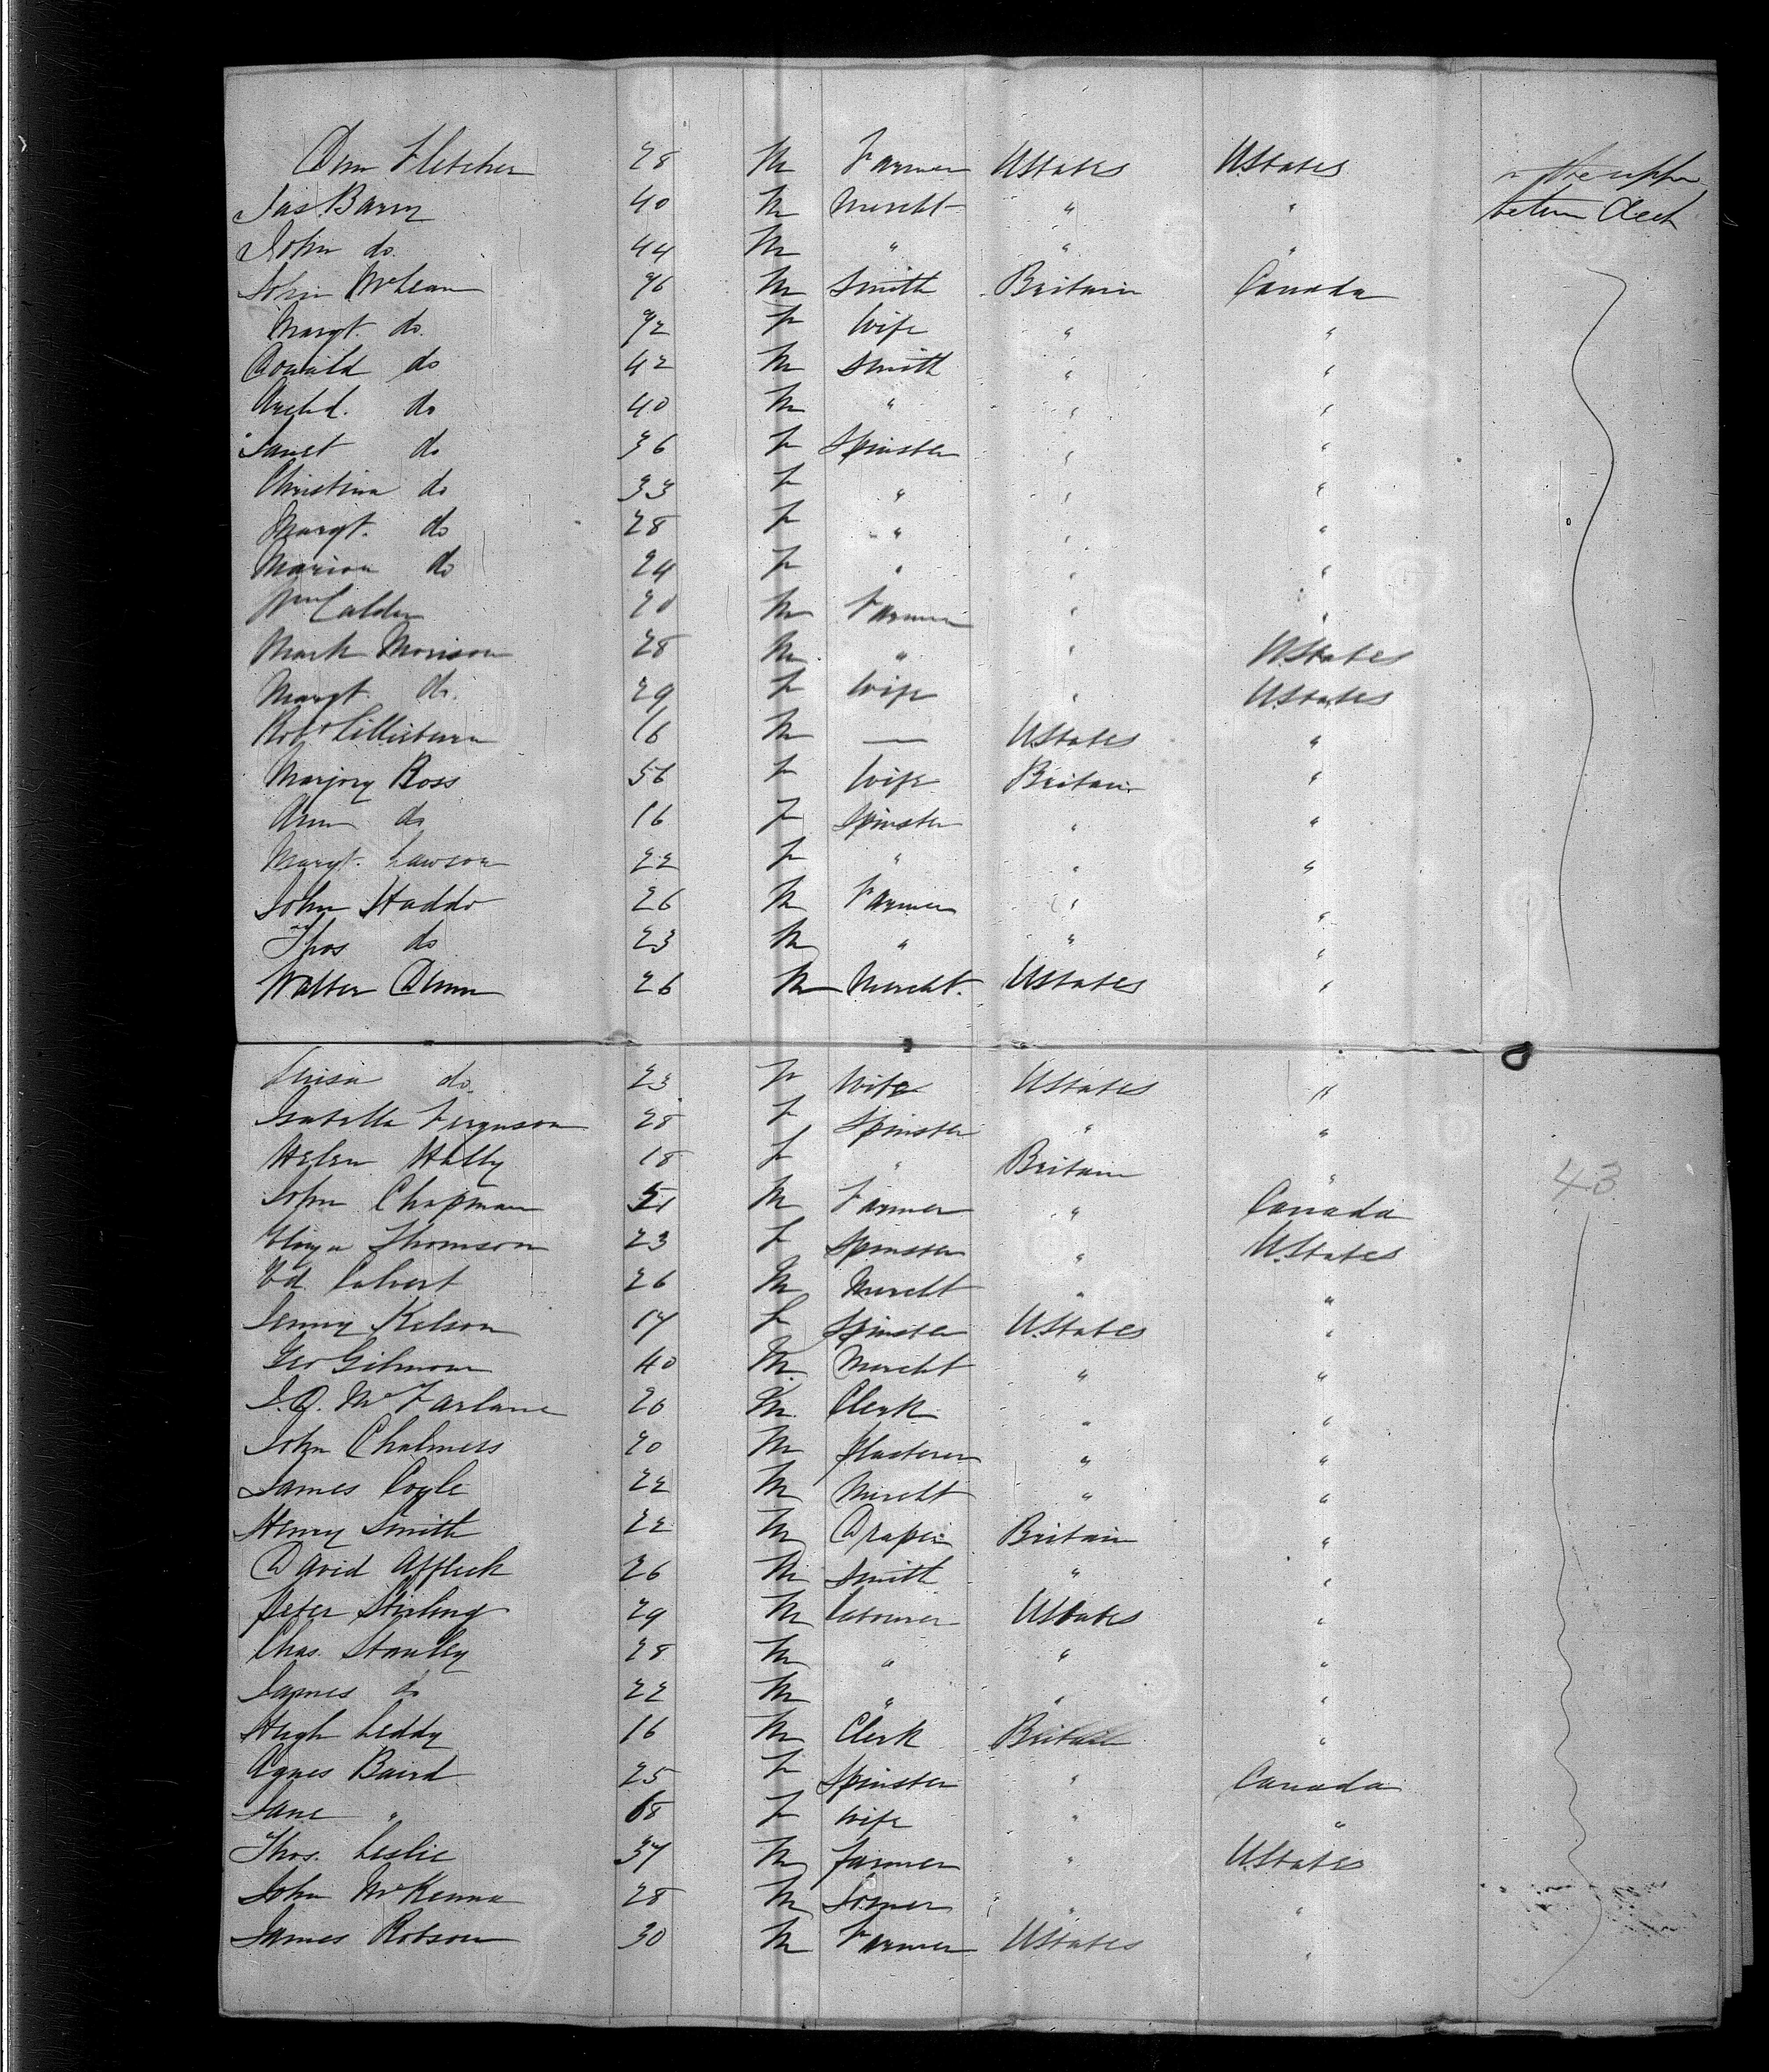 Fletcher 28 M Farmer UStates UStates
Jas. Barry 40 M Mercht " " between Deck
John do. 44 M " " "
John McLean 76 M Smith Britain Canada
Margt. do. 72 F Wife " "
Donald do 42 M Smith " "
Archd. do 40 M " " "
Janet do 36 F Spinster " "
Christina do 33 F " " "
Margt. do 28 F " " "
Marion do 24 F " " "
Wm Calder 20 M Farmer " "
Mark Morison 28 M " " UStates
Margt. do. 29 F Wife " UStates
Robt 16 M — UStates "
Marjory Ross 56 F Wife Britain "
Ann do 16 F Spinster " "
Margt. Lawson 22 F " " "
John Haddo 26 M Farmer " "
Thos do 23 M " " "
Walter Dunn 26 M Mercht. UStates "
do. 23 F Wife UStates "
Isabella Ferguson 28 F Spinster " "
Helen Hally 18 F " Britain "
John Chapman 51 M Farmer " Canada
Thomson 23 F Spinster " UStates
Ed. Calvert 26 M Mercht " "
Jenny Kelson 17 F Spinster UStates "
Geo Gilmour 40 M. Mercht " "
McFarlane 20 M. Clerk " "
John Chalmers 20 M Plasterer " "
James Coyle 22 M Mercht " "
Henry Smith 22 M Draper Britain "
David Affleck 26 M Smith " "
Peter Stirling 29 M Labourer UStates "
Chas. Stanley 28 M " " "
James do 22 M " " "
Hugh Leddy 16 M Clerk Britain "
Agnes Baird 25 F Spinster " Canada
Jane " 68 F Wife " "
Thos. Leslie 37 M Farmer " UStates
John McKenna 28 M " "
James Robson 30 M Farmer UStates "
43